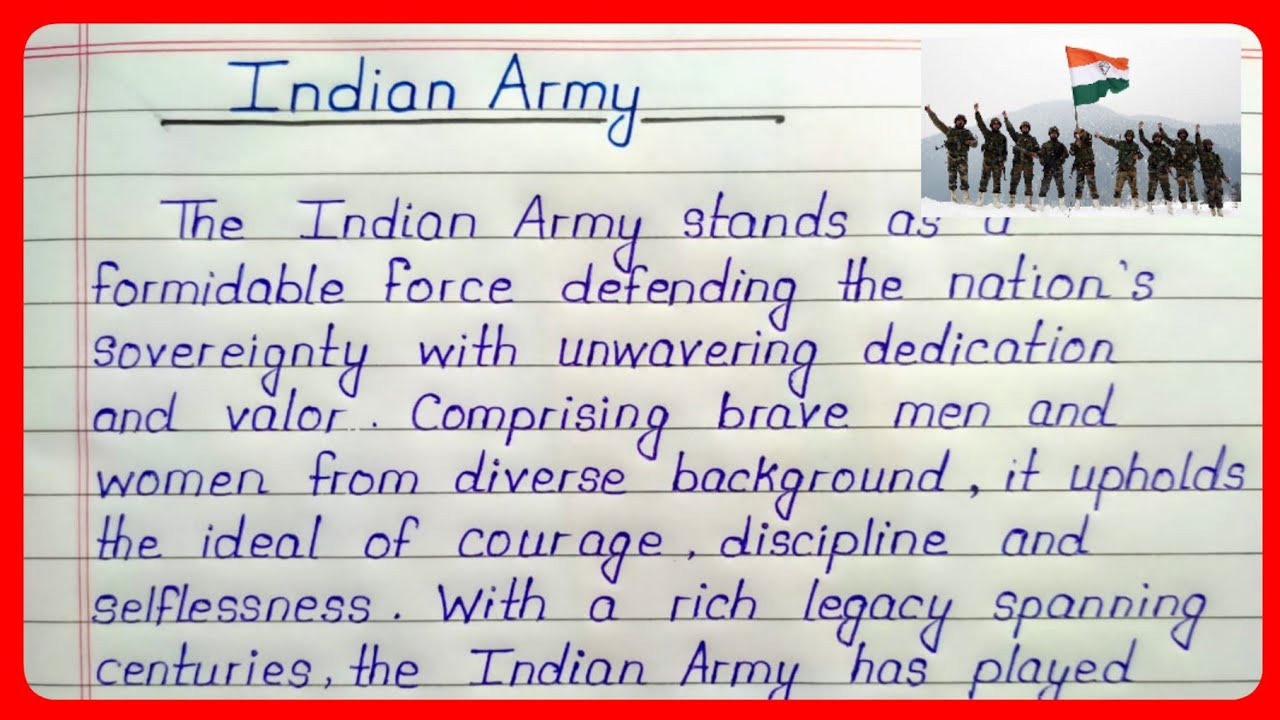 Indian Army
The Indian Army stands as a
formidable force defending the nation's
sovereignty with unwavering dedication
and valor. Comprising brave men and
women from diverse background, it upholds
the ideal of courage, discipline and
selflessness. With a rich legacy spanning
centuries, the Indian Army has played